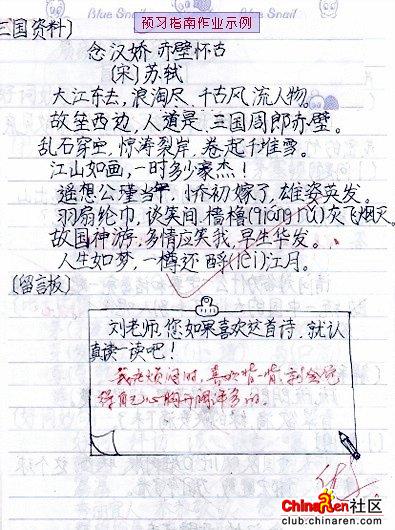 Blue Snail
预习指南作业示例
Blue Snail
三国资料〕
念汉娇 赤壁怀古
〔宋〕苏轼
大江东去,浪淘尽、千古风流人物。
故垒西边,人道是、三国周郎赤壁。
乱石穿空,惊涛裂岸,卷起千堆雪。
江山如画,一时多少豪杰!
遥想公瑾当年,小乔初嫁了,雄姿英发。
羽扇纶巾,谈笑间、樯橹(qiáng rǔ)灰飞烟灭。
故国神游,多情应笑我,早生华发。
人生如梦,一樽还酹(lèi)江月。
〔留言板〕
刘老师,您如果喜欢这首诗,就认
真读一读吧!
我在烦闷时,喜欢背一背,就会觉
得自己心胸开阔许多的。
优
ChinaRen社区
club.chinaren.com